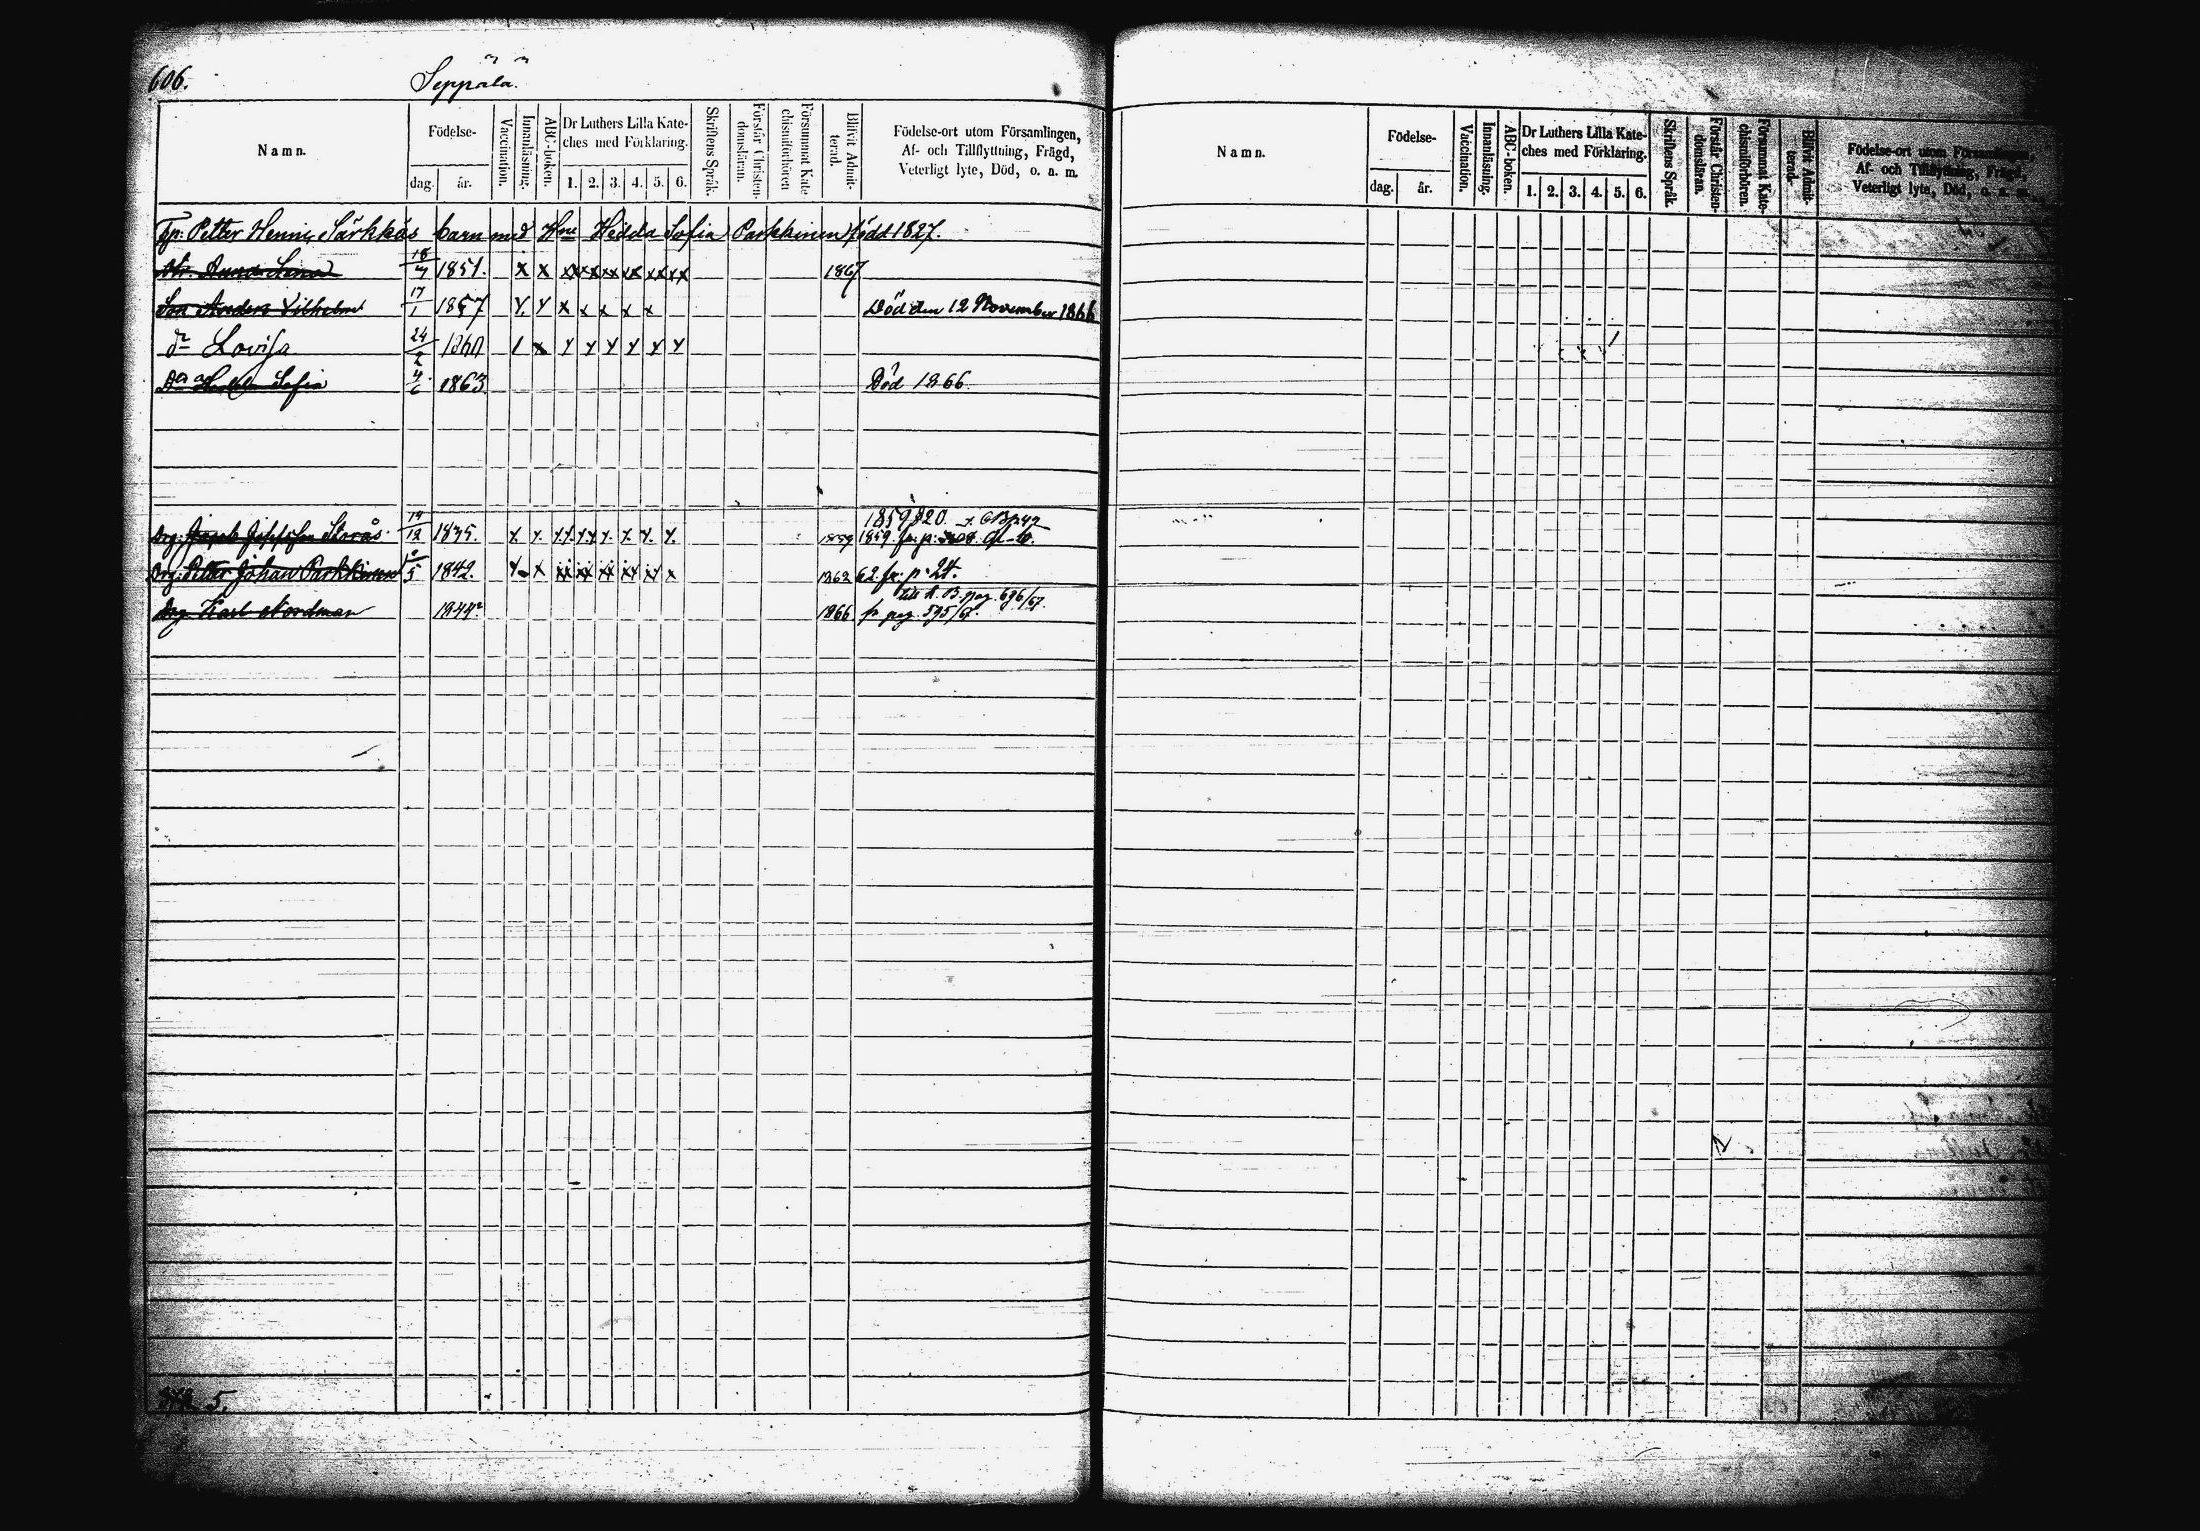 606.
Seppälä.
Namn.
Födelse-
dag. år.
Vaccination.
Innanläsning.
ABC-boken.
Dr Luthers Lilla Kate-
ches med Förklaring.
1. 2. 3. 4. 5. 6.
Skriftens Språk.
Förstår Christen-
domsläran.
Försummat Kate
chismiförhören
Blifvit Admit-
terad.
Födelse-ort utom Församlingen,
Af- och Tillflyttning, Frägd,
Veterligt lyte, Död, o. a. m.
Petter Henric Särkkäs barn med Hne Hedda Sofia Parkkinen född 1827.
Dtr. Anna Lena 18/7 1851. x x xx xx xx xx xx xx 1867
Son Anders Vilhelm 17/1 1857 x x x x x x x Död den 12 November 1866
Lovisa 24/2 1860
Sofia 4/6 1863. Död 1866.
1859
Drg. Jacob Storås 14/12 1835. x x. x x x x. x. x. x. 1859 1859. fr. p.
Drg. Petter Johan Parkkinen 5 1842. 1862 62. fr. p. 24.
till K. B. pag. 696/67.
Drg. Karl Nordman 1844 1866 fr pag. 595/67.
5.
Namn.
Födelse-
dag. år.
Vaccination.
Innanläsning.
ABC-boken.
Dr Luthers Lilla Kate-
ches med Förklaring.
1. 2. 3. 4. 5. 6.
Skriftens Språk.
Förstår Christen-
domsläran.
Försummat Kate-
chismiförhören.
Blifvit Admit-
terad.
Födelse-ort utom Församlingen,
Af- och Tillflyttning, Frägd,
Veterligt lyte, Död, o. a. m.